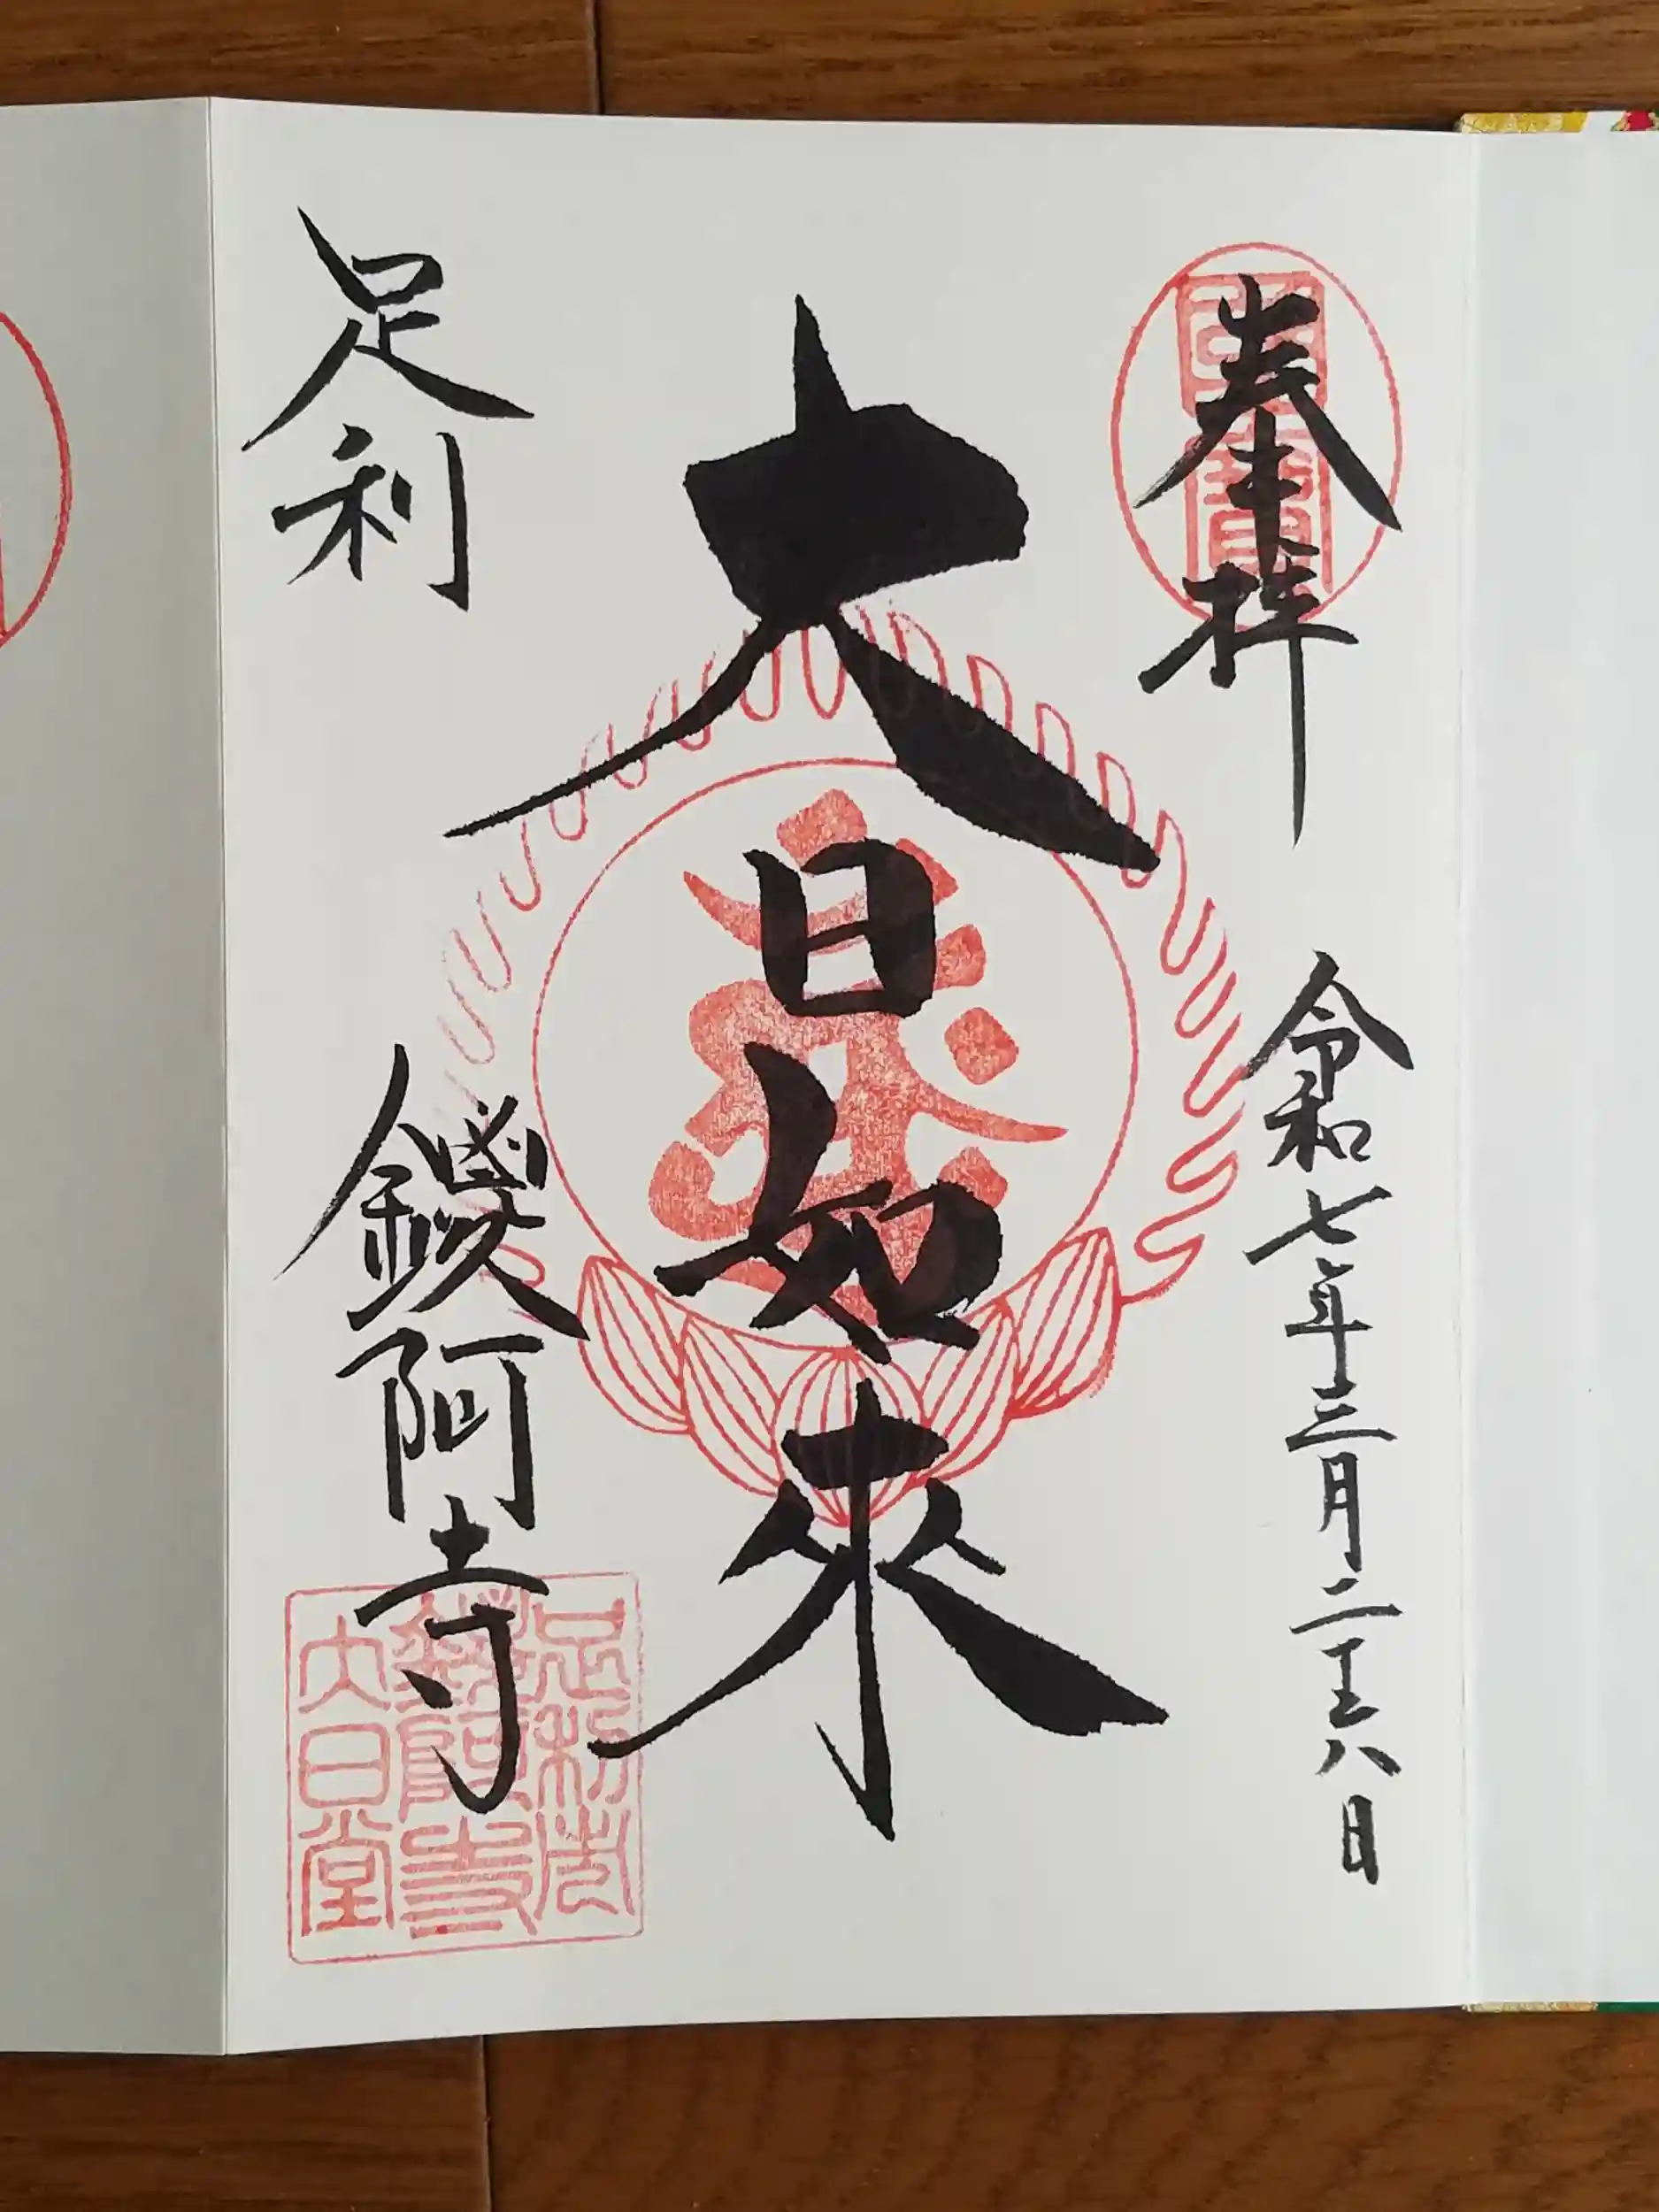 奉拝
令和七年三月二十八日
大日如来
足利
鑁阿寺
足利光
鑁阿寺
大日堂